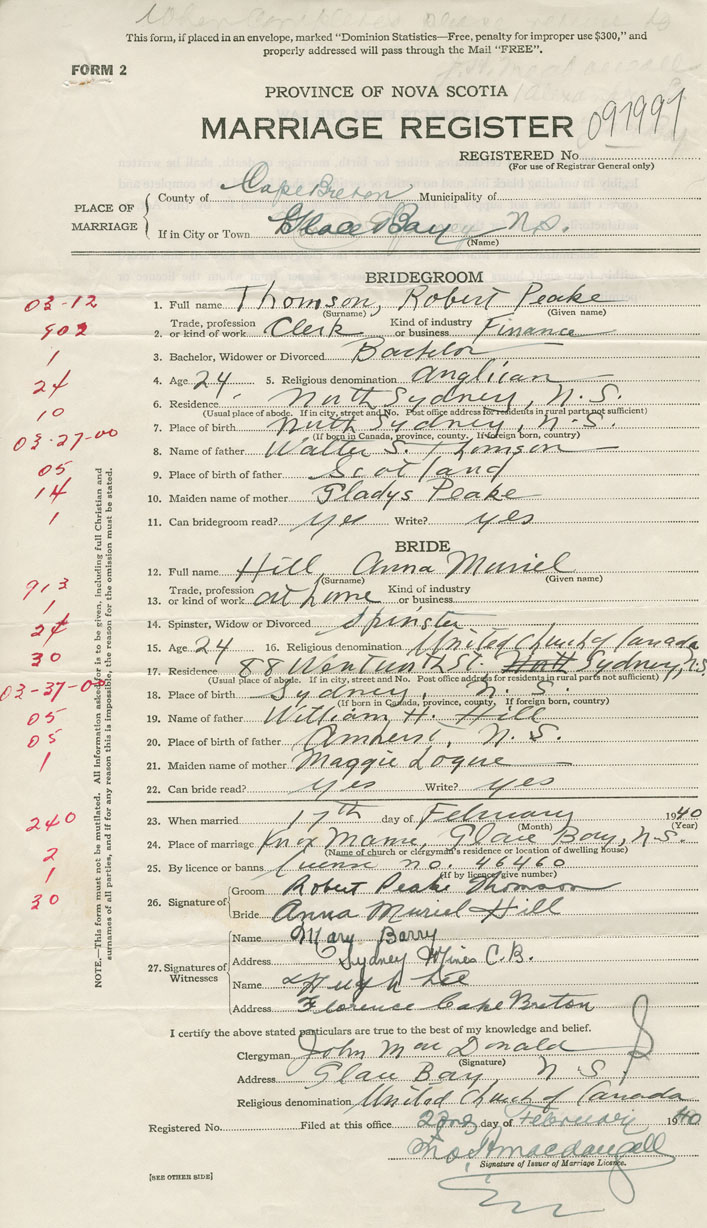 This form, if placed in an envelope, marked "Dominion Statistics—Free, penalty for improper use $300," and
properly addressed will pass through the Mail "FREE".
FORM 2
PROVINCE OF NOVA SCOTIA
MARRIAGE REGISTER 091997
REGISTERED No.
(For use of Registrar General only)
PLACE OF MARRIAGE
County of Cape Breton Municipality of
If in City or Town Glace Bay N.S.
(Name)
BRIDEGROOM
03-12
1. Full name Thomson, Robert Peake
(Surname) (Given name)
902
2. Trade, profession or kind of work Clerk Kind of industry or business Finance
1
3. Bachelor, Widower or Divorced Bachelor
24
4. Age 24 5. Religious denomination Anglican
10
6. Residence North Sydney, N.S.
(Usual place of abode. If in city, street and No. Post office address for residents in rural parts not sufficient)
03-27-00
7. Place of birth North Sydney, N.S.
(If born in Canada, province, county, If foreign born, country)
8. Name of father Walter S. Thomson
05
9. Place of birth of father Scotland
14
10. Maiden name of mother Gladys Peake
1
11. Can bridegroom read? yes Write? yes
BRIDE
12. Full name Hill Anna Muriel
(Surname) (Given name)
913
13. Trade, profession or kind of work at home Kind of industry or business
1
14. Spinster, Widow or Divorced Spinster
24
15. Age 24 16. Religious denomination United Church of Canada
30
17. Residence 88 Wentworth St. Sydney, N.S.
(Usual place of abode. If in city, street and No. Post office address for residents in rural parts not sufficient)
03-37-00
18. Place of birth Sydney, N.S.
(If born in Canada, province, county, If foreign born, country)
05
19. Name of father William H. Hill
05
20. Place of birth of father Amherst, N.S.
1
21. Maiden name of mother Maggie Logue
22. Can bride read? yes Write? yes
NOTE.—This form must not be mutilated. All information asked for is to be given, including full Christian and
surnames of all parties, and if for any reason this is impossible, the reason for the omission must be stated.
240
23. When married 17th day of February 1940
(Month) (Year)
2
24. Place of marriage Knox Manse, Glace Bay, N.S.
(Name of church or clergyman's residence or location of dwelling house)
1
25. By licence or banns license no. 46460
(If by licence give number)
30
26. Signature of
Groom Robert Peake Thomson
Bride Anna Muriel Hill
27. Signatures of Witnesses
Name Mary Barry
Address Sydney Mines C.B.
Name Hugh Lee
Address Florence Cape Breton
I certify the above stated particulars are true to the best of my knowledge and belief.
Clergyman John MacDonald
(Signature)
Address Glace Bay, N.S.
Religious denomination United Church of Canada
Registered No. Filed at this office 23rd day of February 1940
Jno. A. Macdougall
Signature of Issuer of Marriage Licence.
[SEE OTHER SIDE]